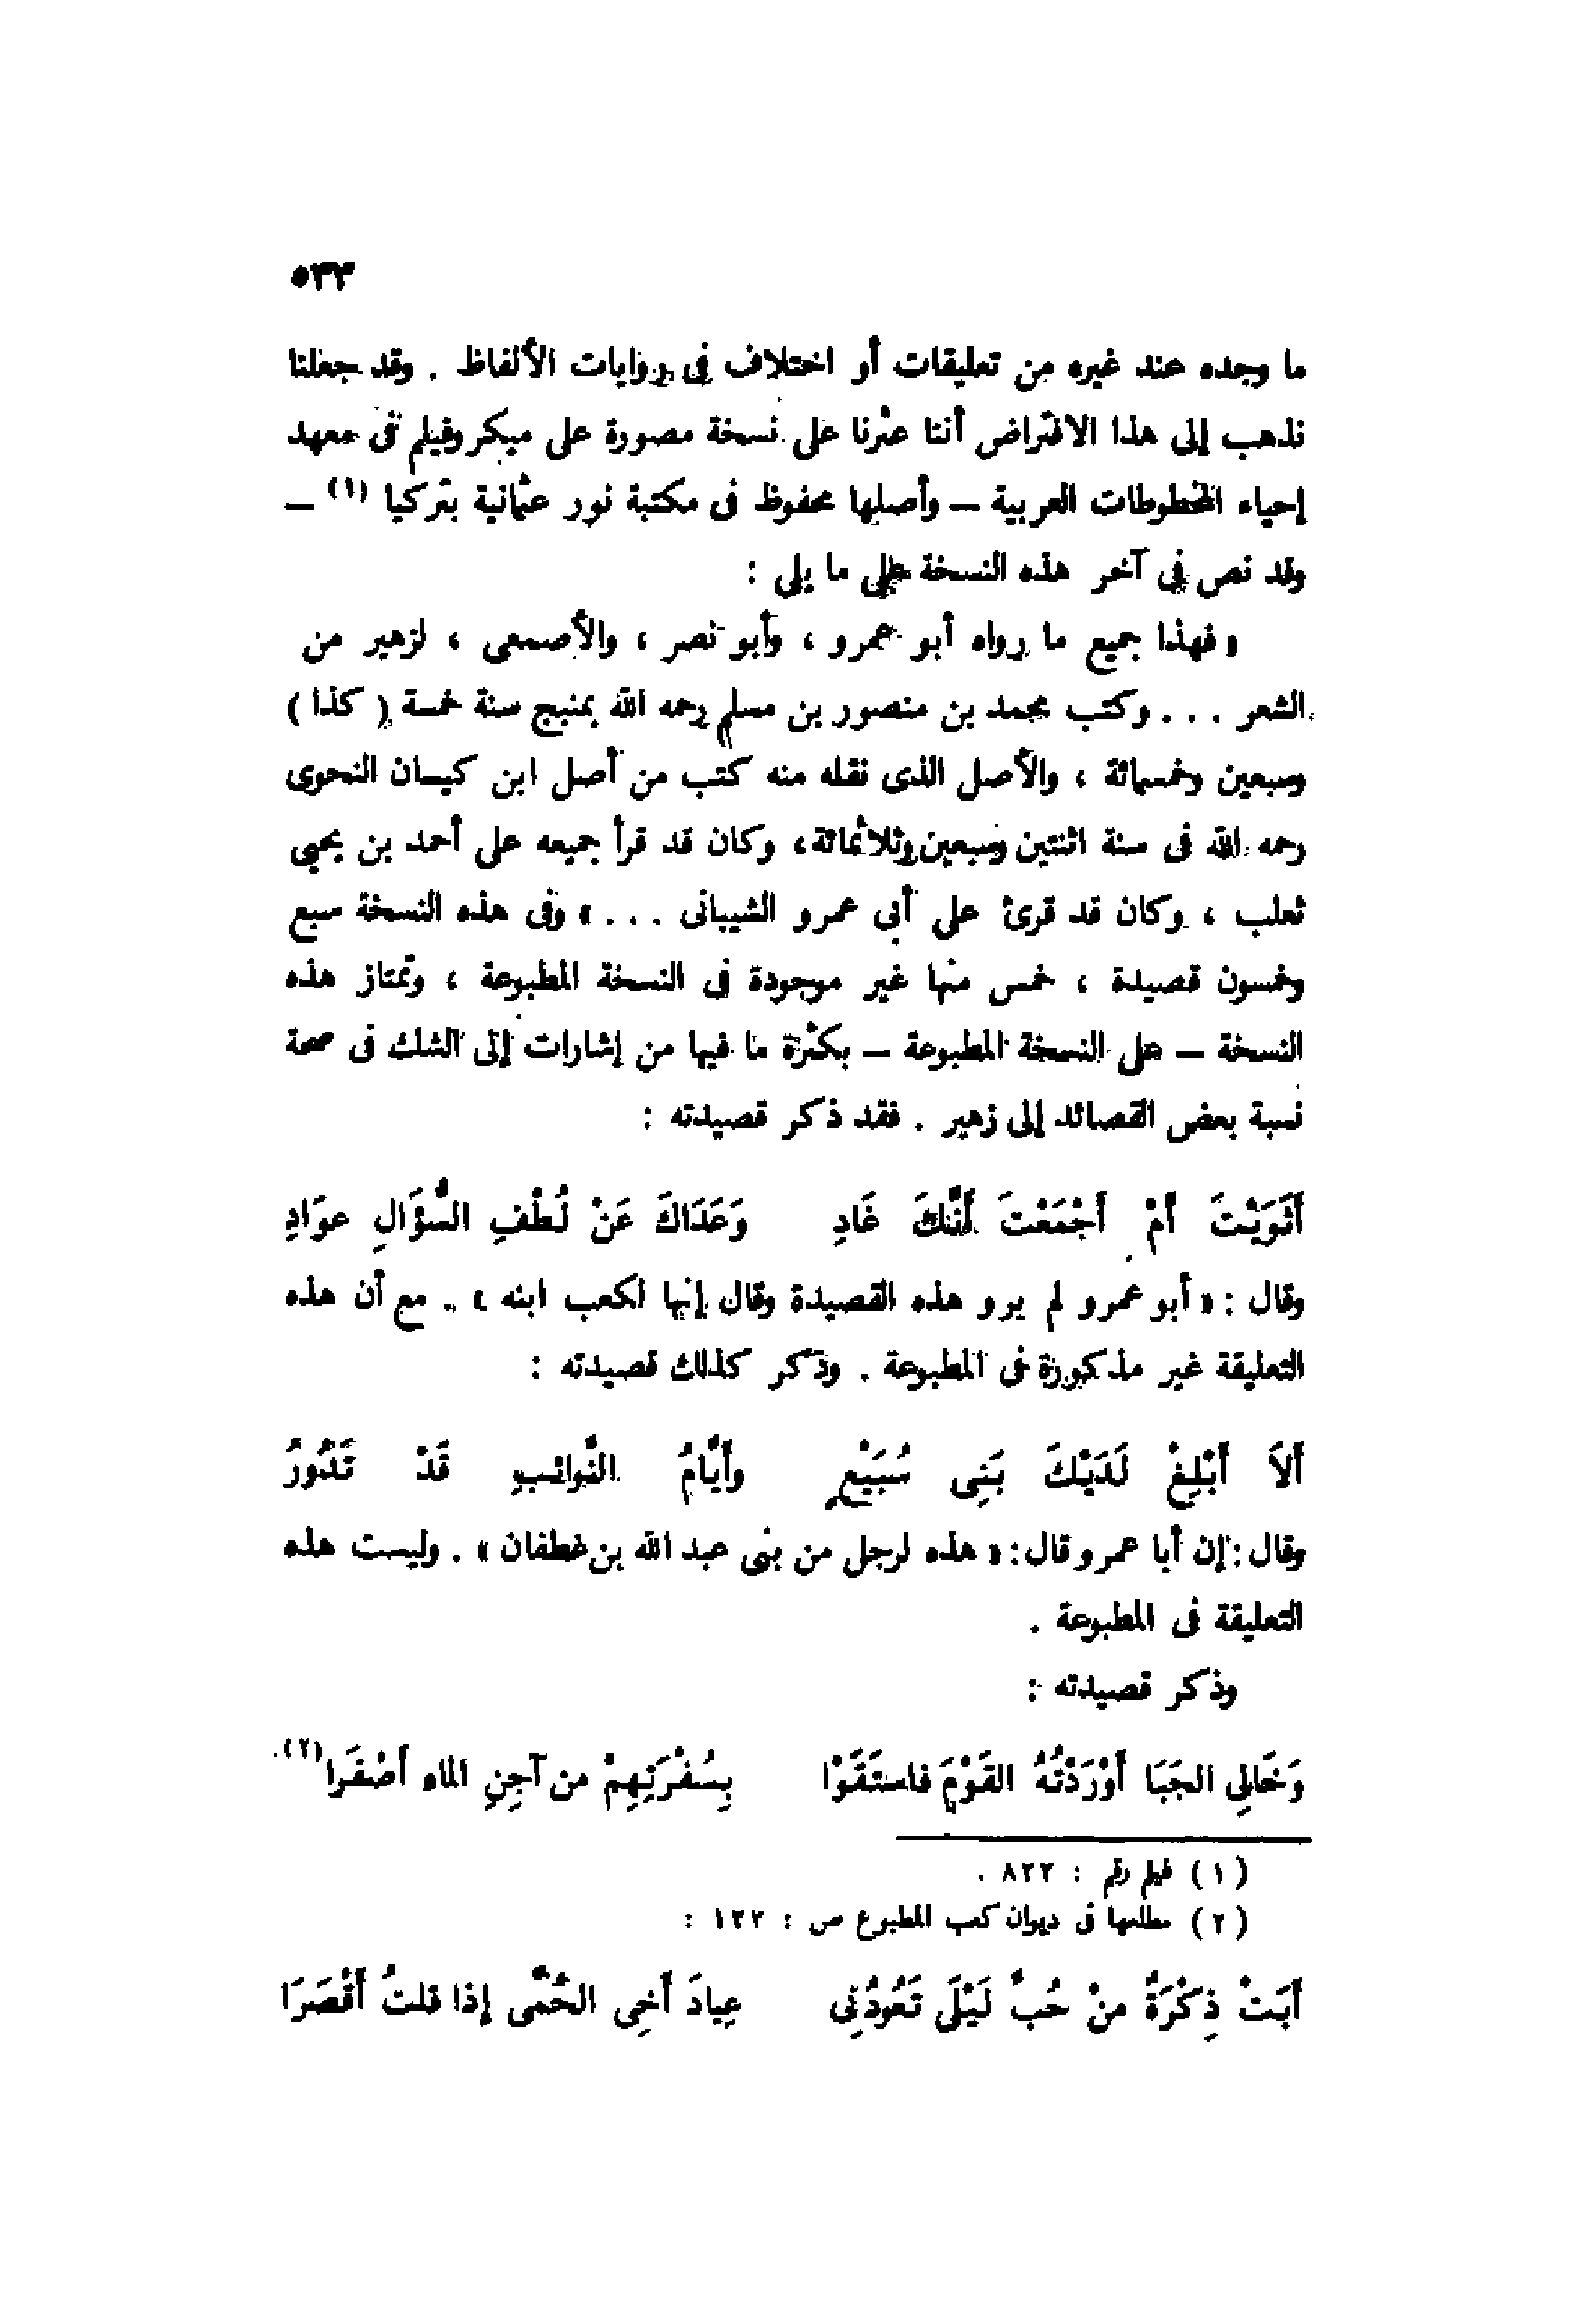 ٥٣٣
ما وجده عند غيره من تعليقات أو اختلاف فى روايات الألفاظ . وقد جعلنا
نذهب إلى هذا الافتراض أننا عثرنا على نسخة مصورة على ميكروفيلم فى معهد
إحياء المخطوطات العربية – وأصلها محفوظ فى مكتبة نور عثمانية بتركيا (١) –
وقد نص فى آخر هذه النسخة على ما يلى :
« فهذا جميع ما رواه أبو عمرو ، وأبو نصر ، والأصمعى ، لزهير من
الشعر . . . وكتب محمد بن منصور بن مسلم رحمه الله بمنبج سنة خمسة ( كذا )
وسبعين وخمسمائة ، والأصل الذى نقله منه كتب من أصل ابن كيسان النحوى
رحمه الله فى سنة اثنتين وسبعين وثلاثمائة ، وكان قد قرأ جميعه على أحمد بن يحيى
ثعلب ، وكان قد قرئ على أبى عمرو الشيبانى . . . » وفى هذه النسخة سبع
وخمسون قصيدة ، خمس منها غير موجودة فى النسخة المطبوعة ، وتمتاز هذه
النسخة – على النسخة المطبوعة – بكثرة ما فيها من إشارات إلى الشك فى صحة
نسبة بعض القصائد إلى زهير . فقد ذكر قصيدته :
أَثَوَيْتَ أَمْ أَجْمَعْتَ أَنَّكَ غَادِ وَعَدَاكَ عَنْ لُطْفِ السُّؤَالِ عوَادِ
وقال : « أبو عمرو لم يرو هذه القصيدة وقال إنها لكعب ابنه » . مع أن هذه
التعليقة غير مذكورة فى المطبوعة . وذكر كذلك قصيدته :
أَلاَ أَبْلِغْ لَدَيْكَ بَنِى سُبَيْعٍ وأَيَّامُ النَّوائبِ قَدْ تَدُورُ
وقال : إن أبا عمرو قال : « هذه لرجل من بنى عبد الله بن غطفان » . وليست هذه
التعليقة فى المطبوعة .
وذكر قصيدته :
وَخَالِى الجَبَا أَوْرَدْتُهُ القَوْمَ فاستَقَوْا بِسُفْرَتِهِمْ من آجِنِ الماء أَصْفَرا (٢)
(١) فيلم رقم : ٨٢٢ .
(٢) مطلعها فى ديوان كعب المطبوع ص : ١٢٢ :
أَبَتْ ذِكْرَةٌ منْ حُبِّ لَيْلَى تَعُودُنِى عِيادَ أَخِى الحُمَّى إذا قلتُ أَقْصَرَا